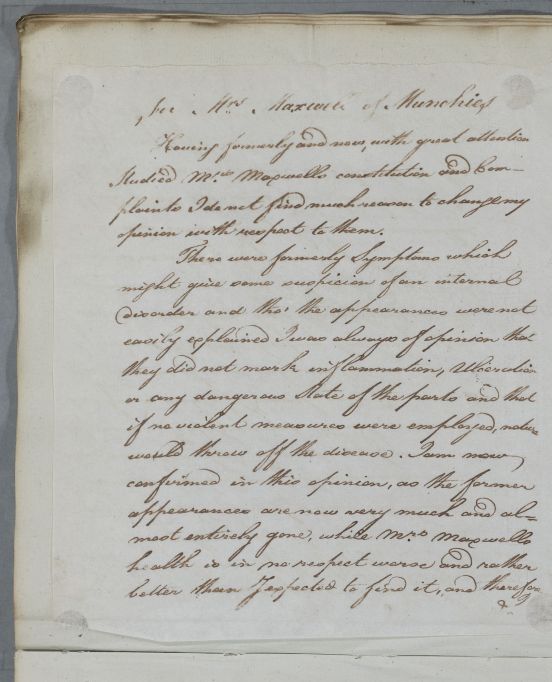 for Mrs. Maxwell of Munchies
Having formerly and now, with great attention
Studied Mrs. Maxwells constitution and Com-
plaints I do not find much reason to change my
opinion with respect to them.
There were formerly Symptoms which
might give some suspicion of an internal
disorder and tho' the appearances were not
easily explained I was always of opinion that
they did not mark inflammation, Ulceration
or any dangerous State of the parts and that
if no violent measures were employed, nature
would throw off the disease. I am now
confirmed in this opinion, as the former
appearances are now very much and al-
most entirely gone, while Mrs. Maxwells
health is in no respect worse and rather
better than I expected to find it, and therefore